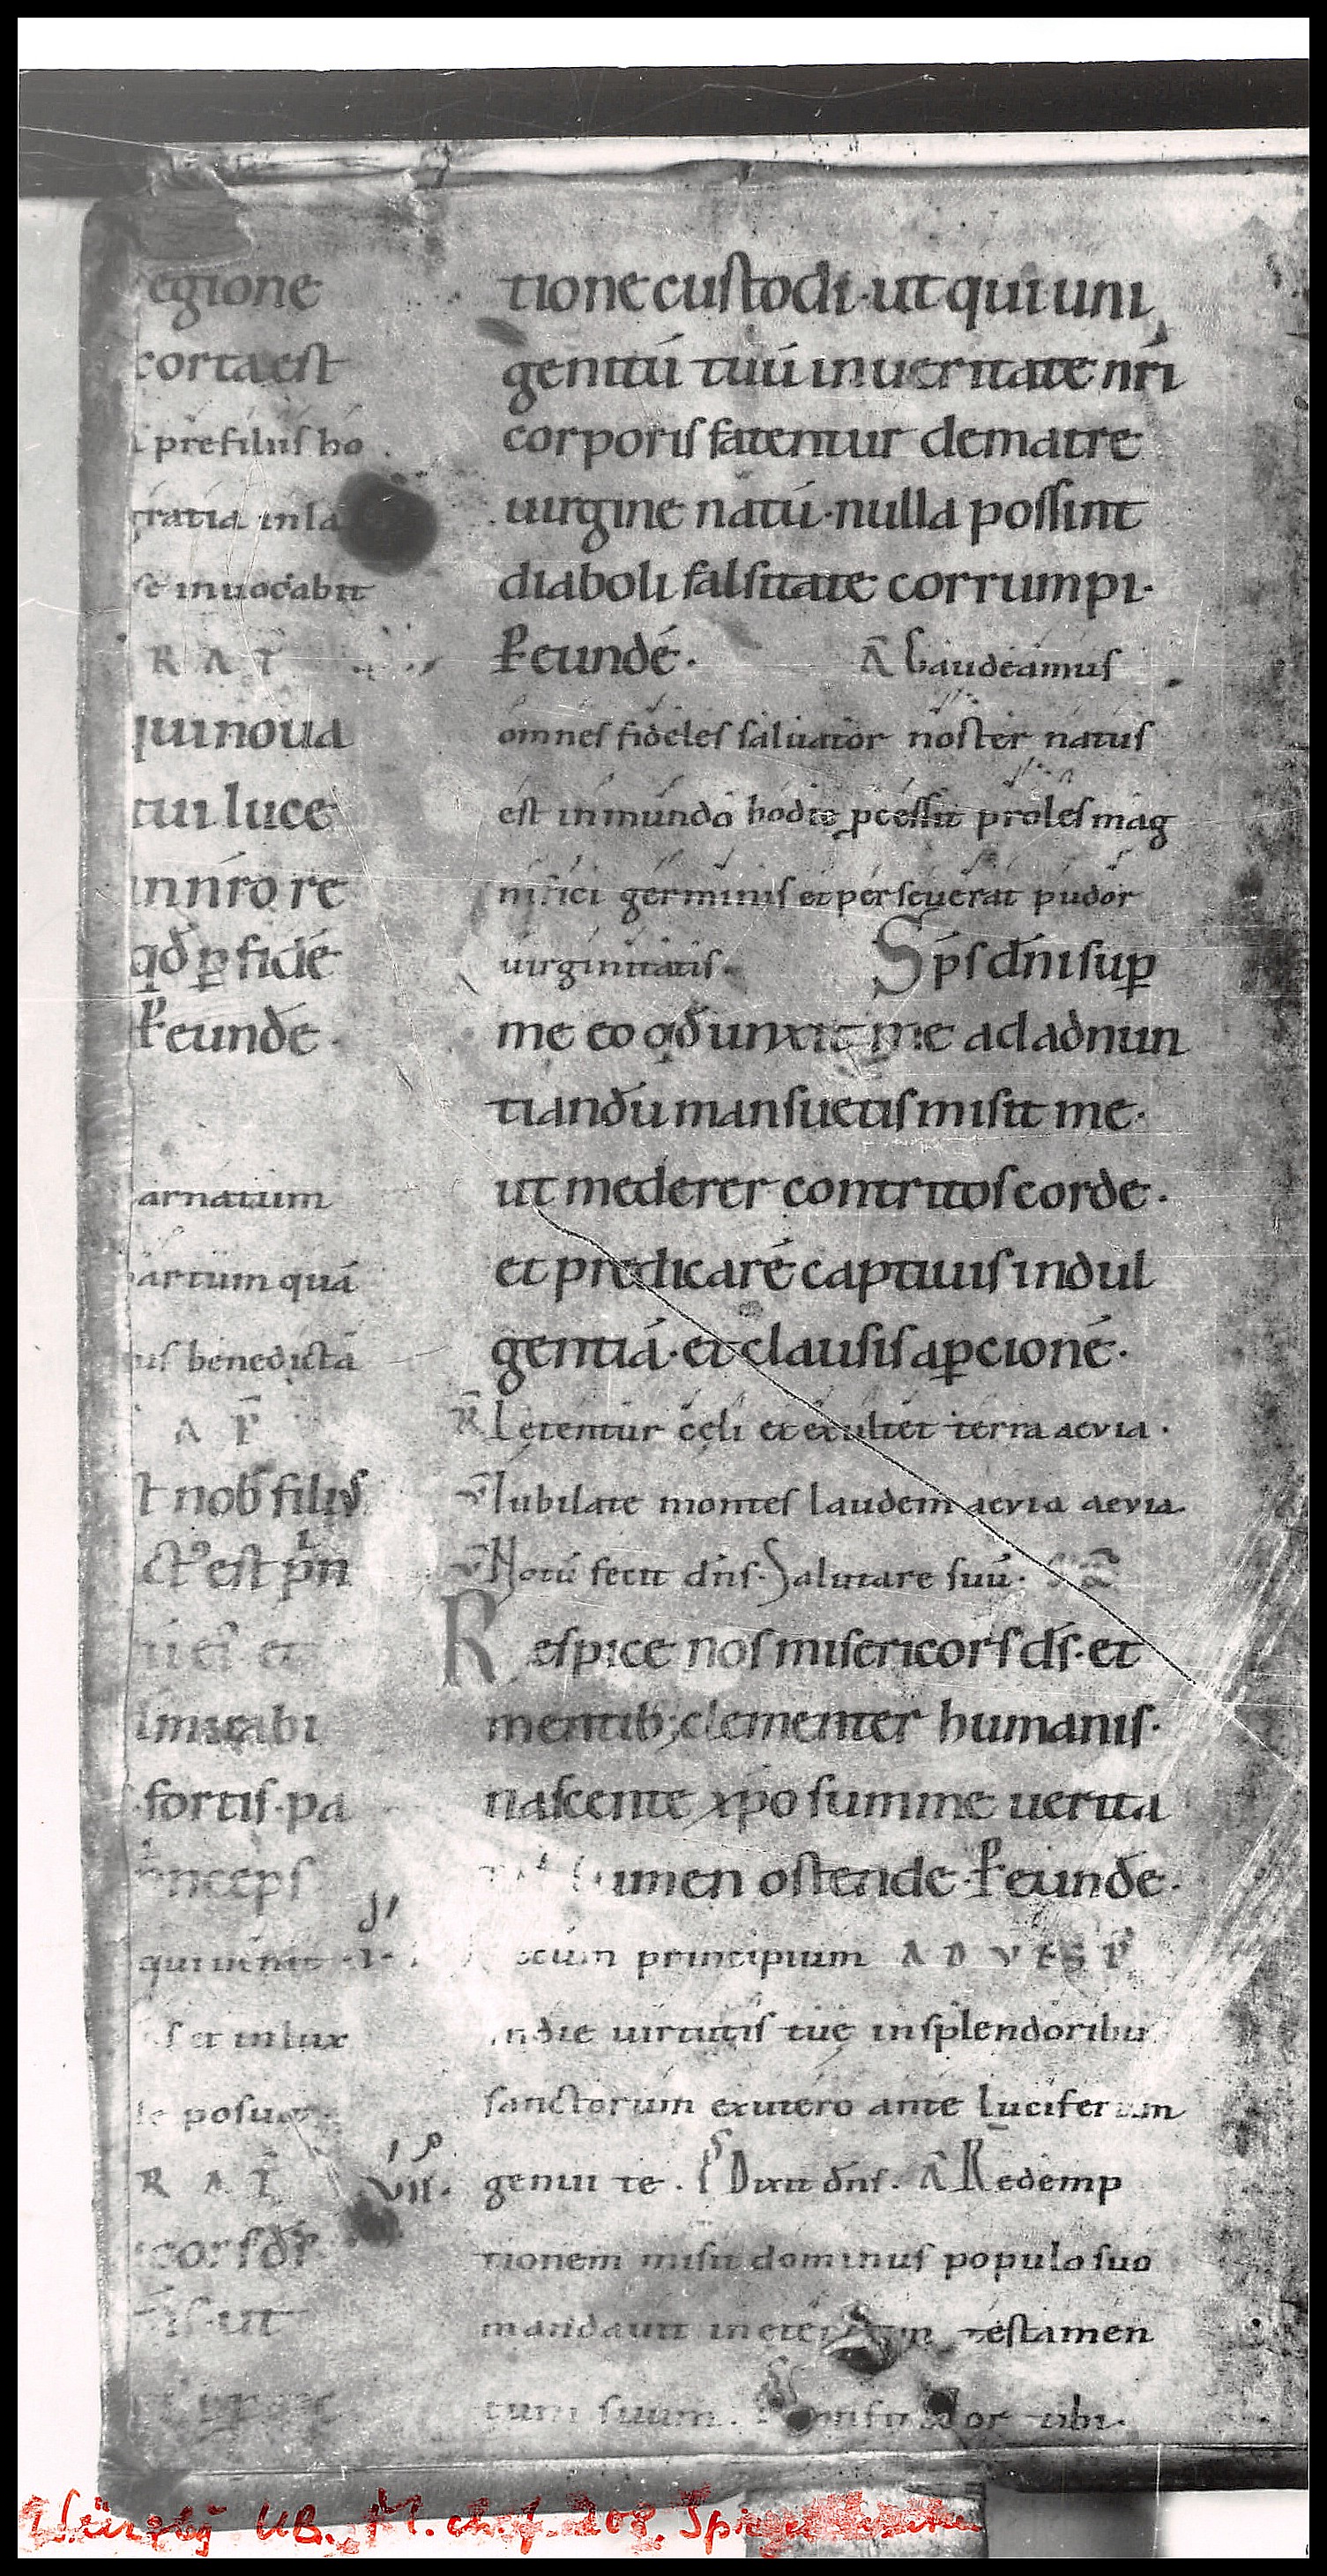 egione
corta est
prefilius ho
gratia in la
se inuocabit
R A T
qui noua
tui luce
in nr̄o re
qđ ꝑ fidē
P̱eundē.
arnatum
artum quā
us benedictā
A P̄
t nob̄ filius
ctꝰ est p̄n
et
mirabi
fortis · pa
nceps
qui uenit · I ·
s et in lux
posui
R A T̄
cors dš
ut
tione custodi · ut qui uni
genitū tuū in ueritate nr̄i
corporis fatentur de matre
uirgine natū · nulla possint
diaboli falsitate corrumpi ·
P̱eundē · Ā Gaudeamus
omnes fideles saluator noster natus
est in mundo hodie ꝓcessit proles mag
nifici germinis et perseuerat pudor
uirginitatis · Sp̄s dn̄i suꝑ
me eo qđ unxit me ad adnun
tiandū mansuetis misit me ·
ut mederer contritos corde ·
et predicarē captiuis indul
gentiā · et clausis aꝑcionē ·
R̄ Lętentur cęli et exultet terra aeuia ·
V̄ Iubilate montes laudem aeuia aeuia
V̄ Notū fecit dn̄s · Salutare suū ·
Respice nos misericors dš · et
mentib; clementer humanis ·
nascente xp̄o summe uerita
umen ostende · P̱eundē ·
ecum principium A D V E S P̄
in die uirtutis tuę in splendoribus
sanctorum ex utero ante luciferum
VII · genui te · P̄s Dixit dn̄s · Ā Redemp
tionem misit dominus populo suo
mandauit in eternum testamen
tum suum · or tibi ·
Würzburg UB. M. ch. f. 208,